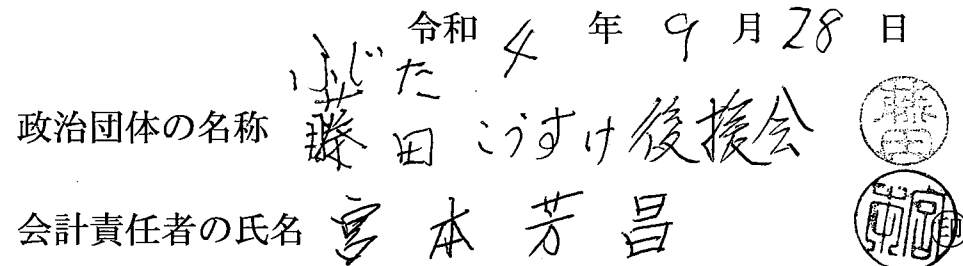 令和 4 年 9 月 28 日
ふじた
政治団体の名称 藤田こうすけ後援会 藤田
会計責任者の氏名 宮本芳昌 宮本 印